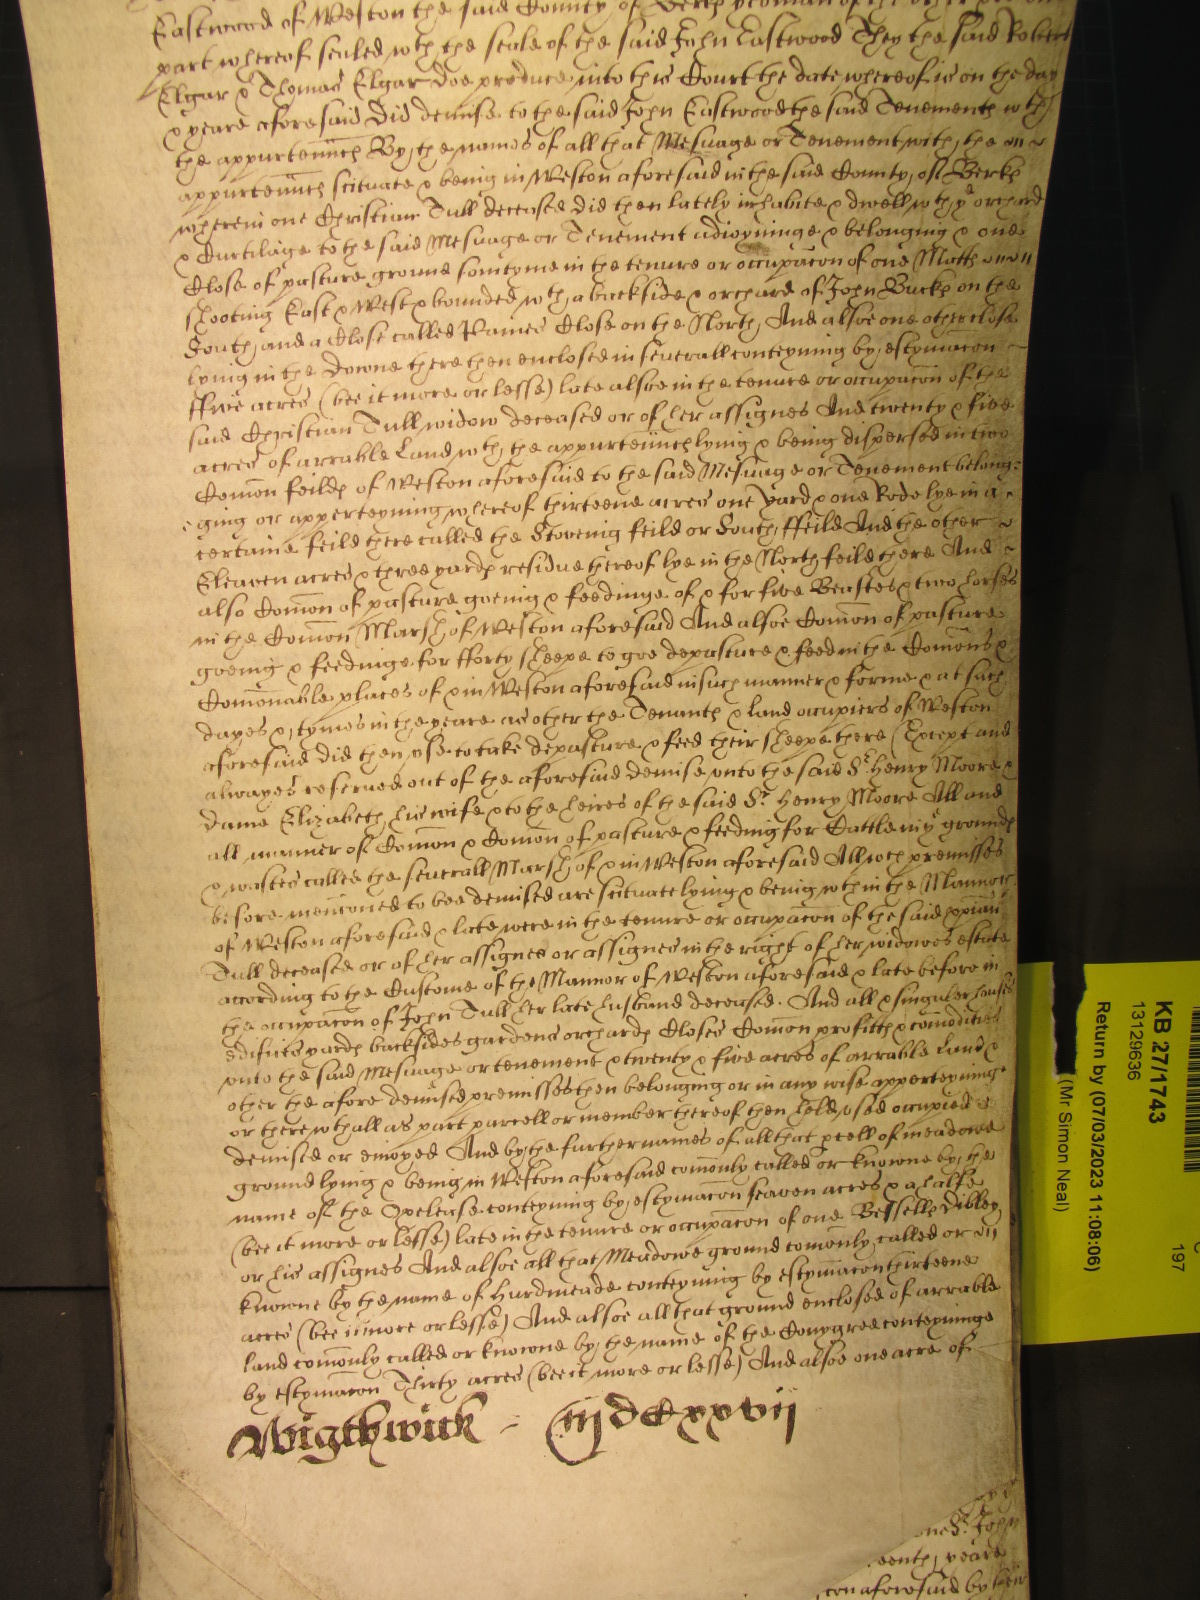 Eastwood of Weston the said County of Berk yeoman of the other
part whereof sealed wth the seale of the said John Eastwood They the said Robert
Elgar & Thomas Elgar doe produce into this Court the date whereof is on the day
& yeare aforesaid Did demise to the said John Eastwood the said Tenementes wth
the appurtenncs By the names of all that Mesuage or Tenement with the
appurtenncs scituate & being in Weston aforesaid in the said County of Berks
wherein one Christian Tull deceased did then lately inhabite & dwell wth ye orchard
& Curtilage to the said Mesuage or Tenement adioyninge & belonging & one
Close of pasture ground somtyme in the tenure or occupacon of one Math
shooting East & West & bounded wth a backside & orchard of John Buck on the
South and a Close called Rames Close on the North And alsoe one other close
lying in the Downe there then enclosed in severall conteyning by estymacon
ffive acres (bee it more or lesse) late alsoe in the tenure or occupacon of the
said Christian Tull widow deceased or of her assignes And twenty & five
acres of arrable Land wth the appurtenncs lying & being dispersed in two
Comon feilds of Weston aforesaid to the said Mesuage or Tenement belong=
=ging or apperteyning whereof thirteene acres one Yard & one Rode lye in a
certaine feild there called the Stovenig feild or South ffeild And the other
Eleaven acres & three yards residue thereof lye in the North feild there And
also Comon of pasture goeing & feedinge of & for five Beastes & two horses
in the Comon Marsh of Weston aforesaid And alsoe Comon of pasture
goeing & feedinge for fforty sheepe to goe depasture & feed in the Comons &
Comonable places of & in Weston aforesaid in such manner & forme & at such
dayes & tymes in the yeare as other the Tenants & land occupiers of Weston
aforesaid did then use to take depasture & feed their sheepe there (Except and
alwayes reserved out of the aforesaid demise unto the said Sr Henry Moore &
dame Elizabeth his wife & to the heires of the said Sr Henry Moore All and
all manner of Comon & Comon of pasture & feeding for Cattle in ye grounds
& wastes called the severall Marsh of & in Weston aforesaid All wch premisses
before menconed to bee demised are scituate lying & being wthin the Mannor
of Weston aforesaid & late were in the tenure or occupacon of the said xpian
Tull deceased or of her assignes or assignes in the right of her widowes estate
according to the Custome of the Mannor of Weston aforesaid & late before in
the occupacon of John Tull her late husband deceased. And all & singuler houses
edifices yards backsides gardens orchards Closes Comon profitts & comodities
unto the said Mesuage or tenement & twenty & five acres of arrable Land &
other the afore demised premisses then belonging or in any wise apperteyninge
or therewthall as part parcell or member thereof then held used occupied
demised or enioyed And by the further names of all that pcell of meadowe
ground lying & being in Weston aforesaid comonly called or knowne by the
name of the Opelease conteyning by estymacon seaven acres & a halfe
(bee it more or lesse) late in the tenure or occupacon of one Bessells Dibley
or his assignes And alsoe all that Meadowe ground comonly called or
knowne by the name of Hurdmeade conteyning by estymacon thirteene
acres (bee it more or lesse) And alsoe all that ground enclosed of arrable
land comonly called or knowne by the name of the Conygree conteyninge
by estymacon Thirty acres (bee it more or lesse) And alsoe one acre of
Wigthwick - iijdCxxvij
one Sr John
eenth yeare
con aforesaid by their
KB 27/1743
13129636
Return by (07/03/2023 11:08:06)
(Mr Simon Neal)
197